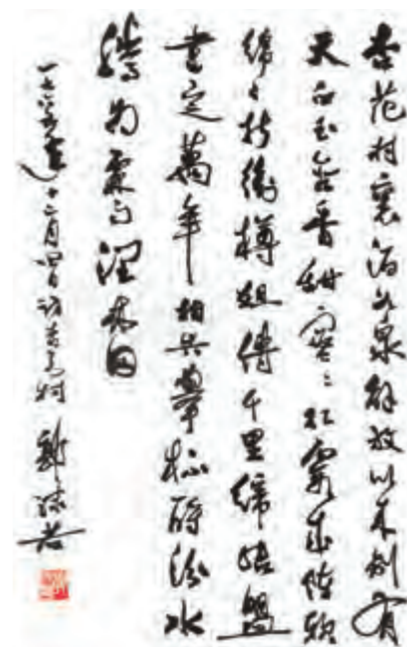 杏花村裏酒如泉解放以來別有
天白玉含香甜蜜々紅霞成陣軟
綿々折衝樽俎傳千里締結盟
書定萬年相共舉杯酹汾水
騰為霖雨潤林田
一九六五年十二月四日訪杏花村 郭沫若